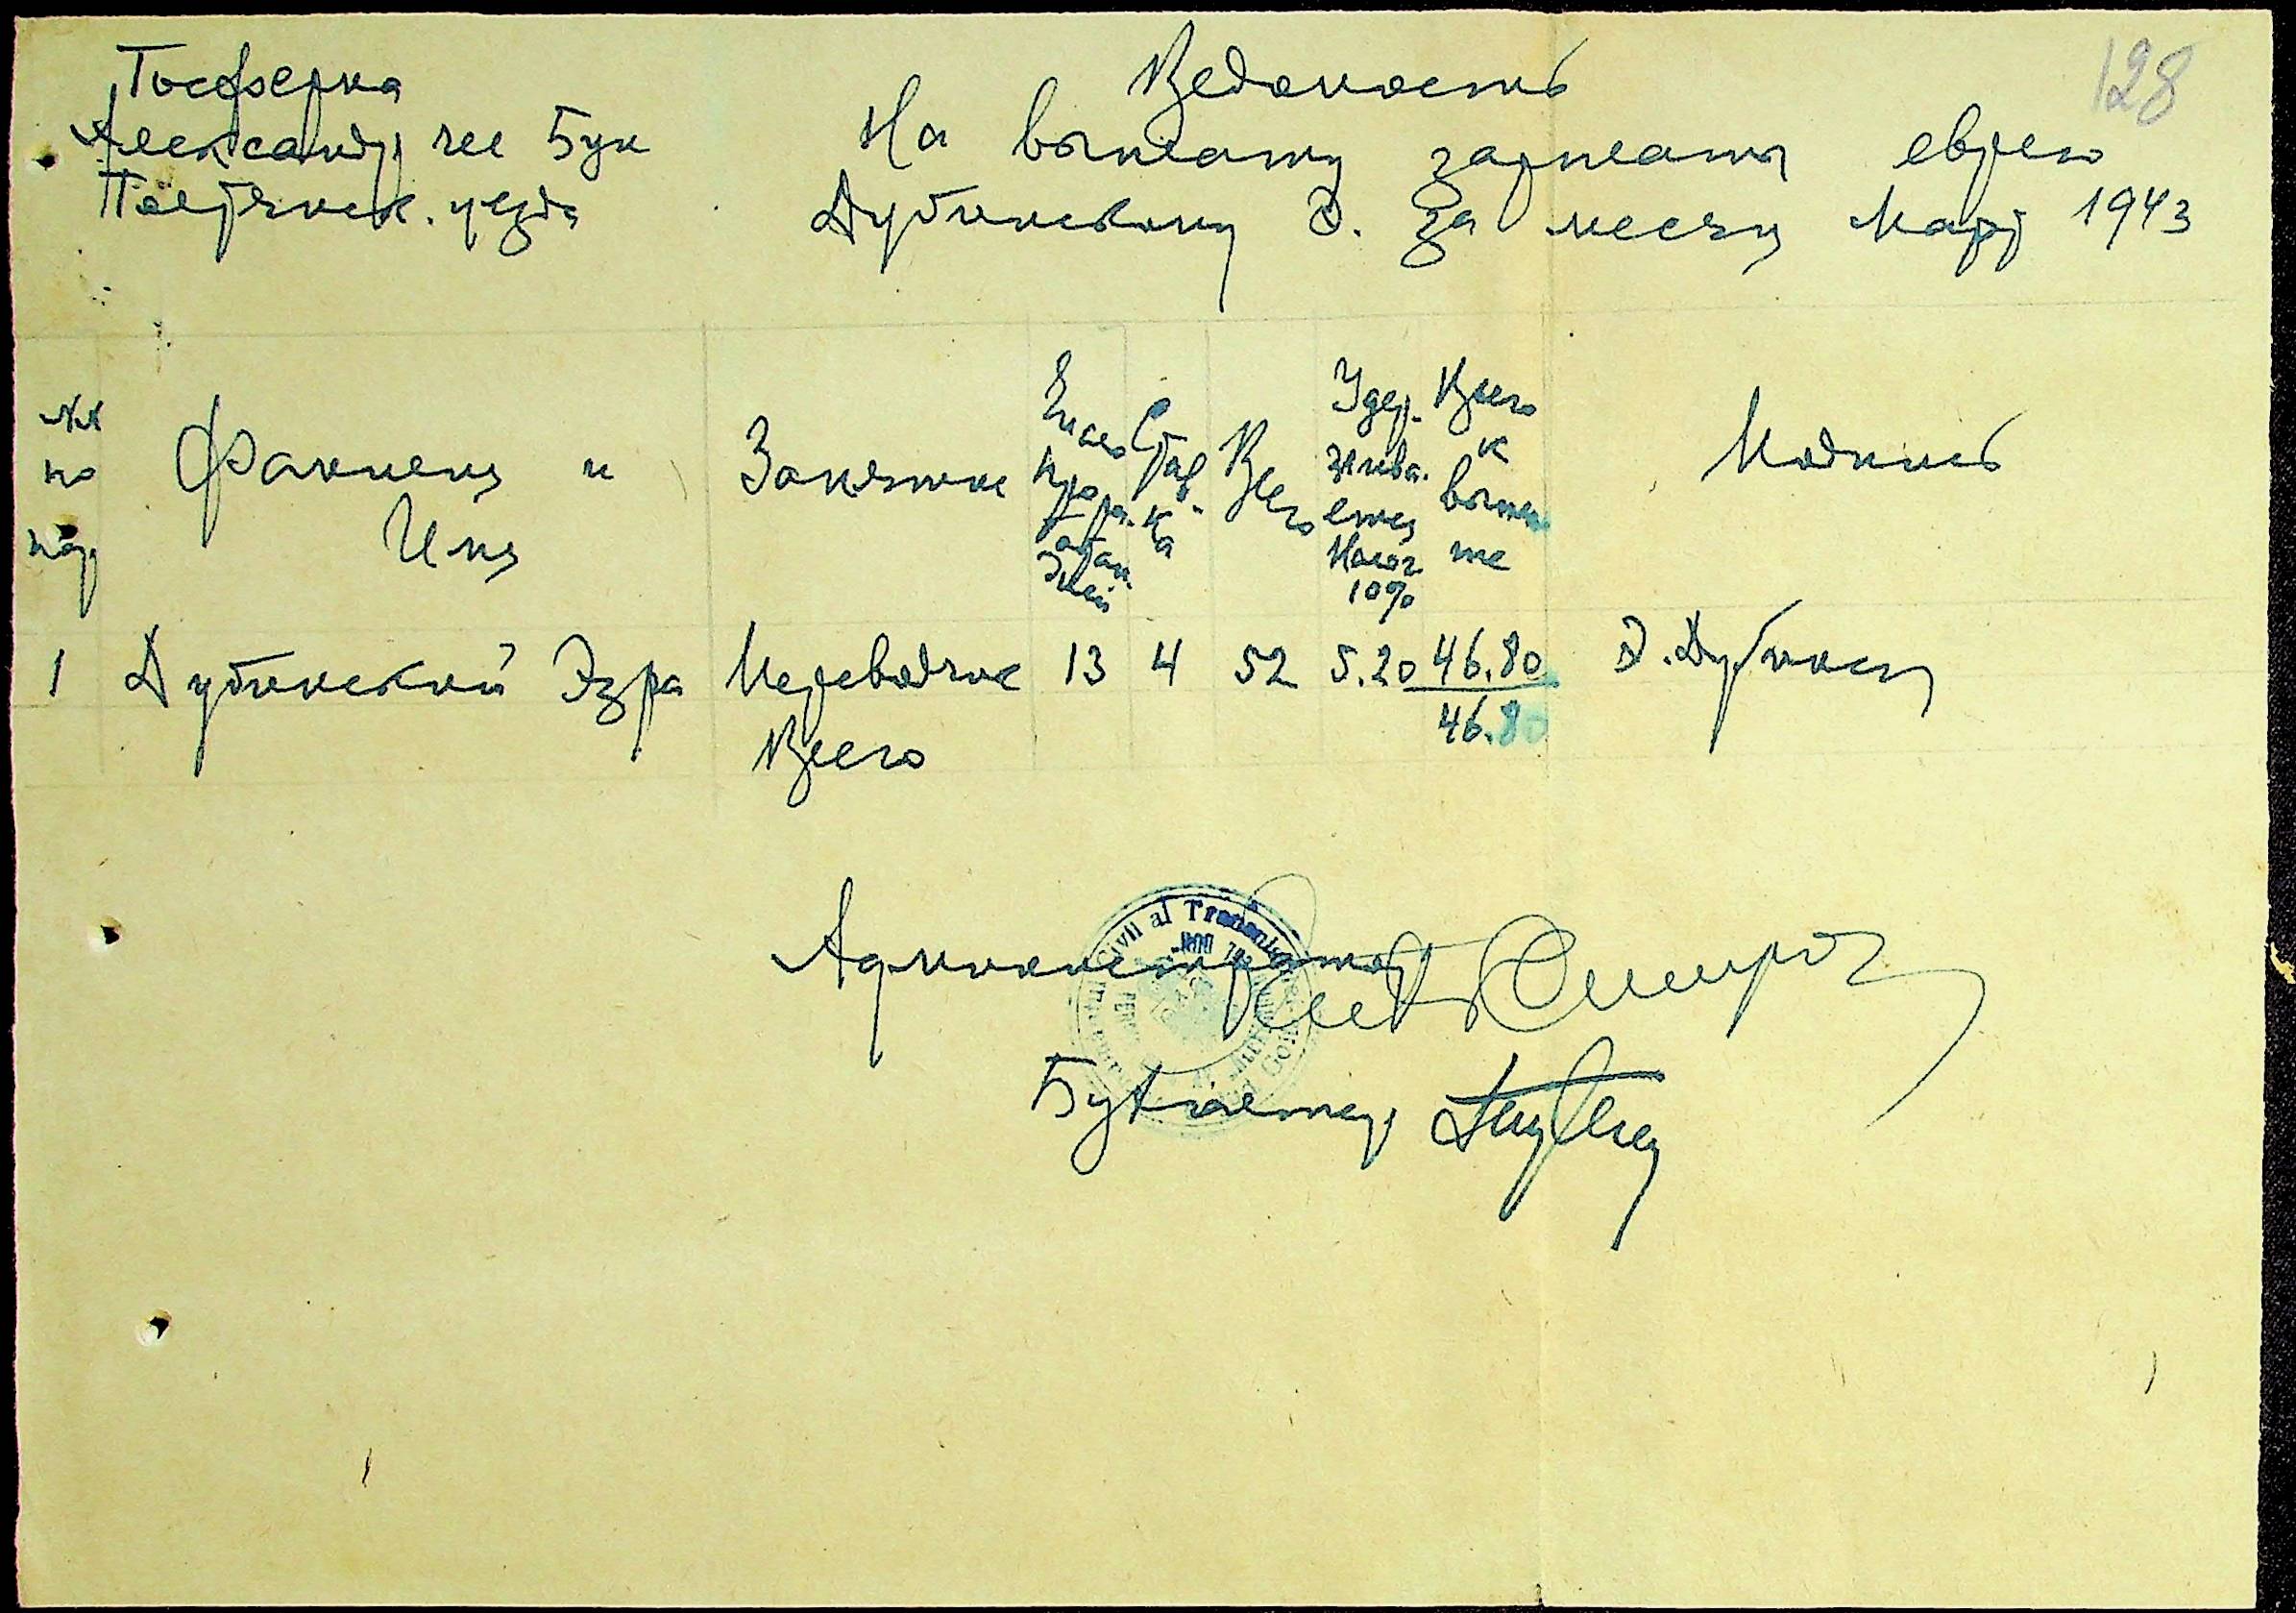 128
Госферма
Александр чел Бук
Голтянск. уезда
Ведомость
На выплату зарплаты еврею
Дубинскому Э. За месяц Март 1943
№№ по пор
Фамилия и Имя
Занятие
Число прора- ботан. дней
Став- ка
Всего
Удер- жива- ется Налог 10%
Всего к выпла те
Подпись
1 Дубинский Эзра Переводчик 13 4 52 5.20 46.80 Э. Дубинск
Всего 46.80
Администратор
Бухгалтер